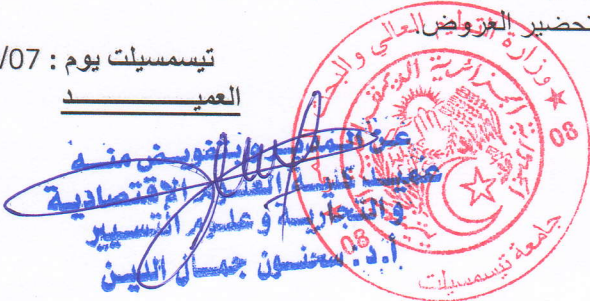 تحضير العروض.
تيسمسيلت يوم : 07/
العميـــــــد
عن المدير وبتفويض منه
عميد كلية العلوم الإقتصادية
والتجارية وعلوم التسيير
أ.د: سحنون جمال الدين
وزارة التعليم العالي و البحث
الجمهورية الجزائرية الديمقر
جامعة تيسمسيلت
08
08